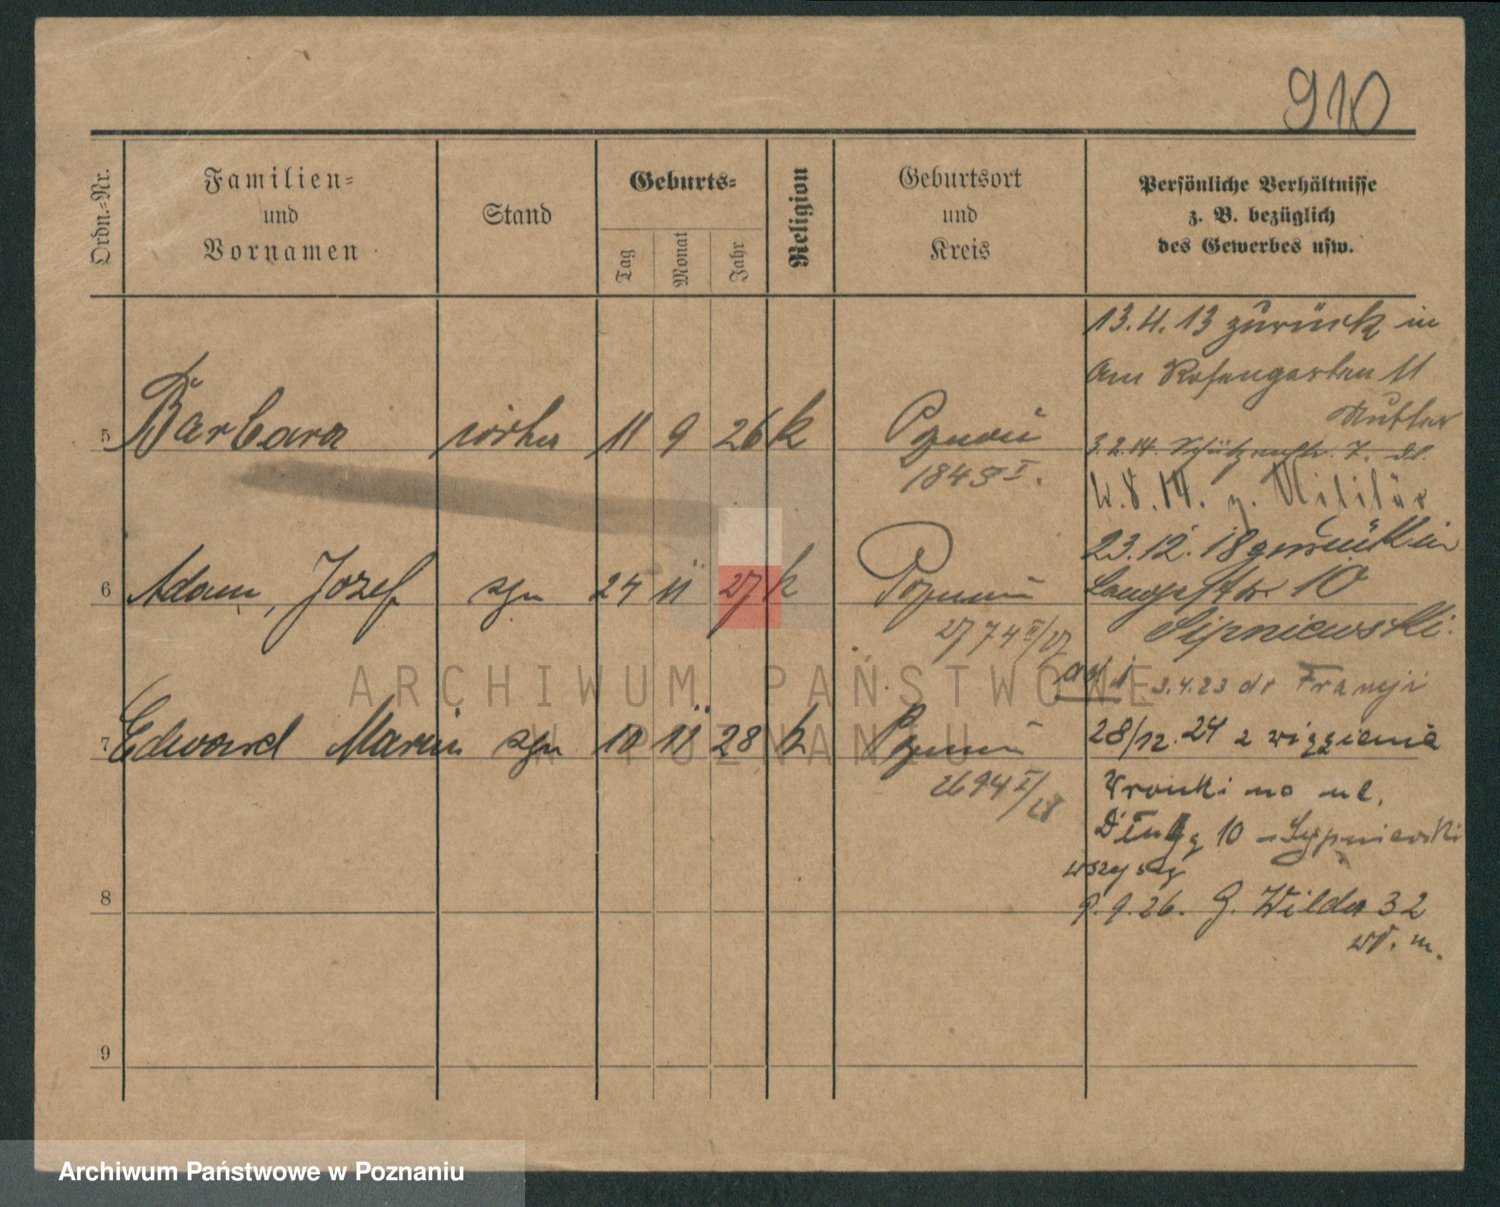 910
Ordn.-Nr.
Familien-
und
Vornamen
Stand
Geburts-
Tag
Monat
Jahr
Religion
Geburtsort
und
Kreis
Persönliche Verhältnisse
z. B. bezüglich
des Gewerbes usw.
13.4.13 zurück in
Am Rosengarten 11
Mutter
5 Barbara córka 11 9 26 k Poznań
1845 I.
3.2.14.
4.8.14. z. Militär
23.12.18 zurück in
6 Adam, Jozef syn 24 11 27 k Poznań
Langestr 10
Sypniewski.
2774 II/27
ad 1 3.4.23 do Francji
7 Edward Marian syn 10 11 28 k Poznań
28/12.24 z więzienia
2694 I/28
Wronki na ul.
Długą 10 Sypniewski
wszyscy
8
9.9.26. G. Wilda 32
9
ARCHIWUM PAŃSTWOWE
W POZNANIU
Archiwum Państwowe w Poznaniu